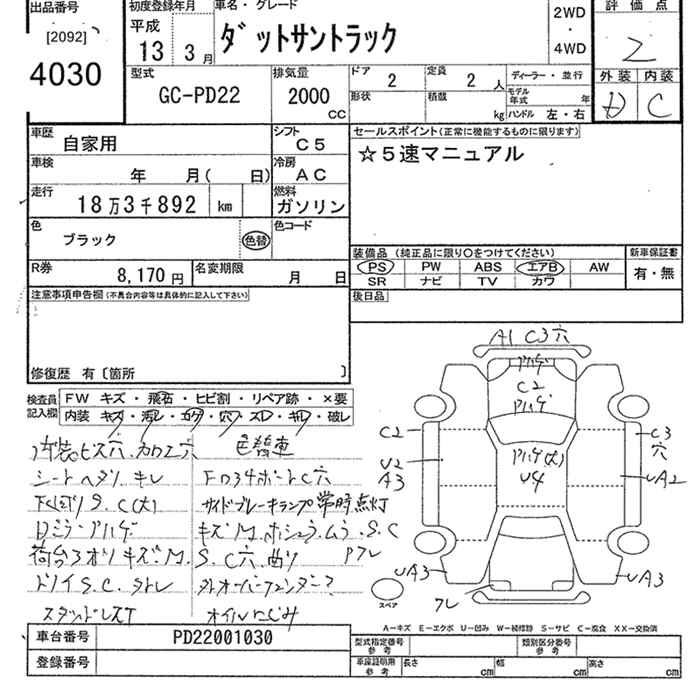 出品番号
[2092]
4030
初度登録年月
平成
13 3月
車名・グレード
ダットサントラック
2WD
・
4WD
評価点
2
外装 内装
D C
型式
GC-PD22
排気量
2000
CC
ドア
2
定員
2 人
形状
積載
kg
ディーラー・並行
モデル年式 年
ハンドル 左・右
車歴
自家用
シフト
C5
車検
年 月( 日)
冷房
AC
走行
18万3千892 km
燃料
ガソリン
色
ブラック
色替
色コード
R券
8,170円
名変期限
月 日
セールスポイント(正常に機能するものに限ります)
☆5速マニュアル
装備品 (純正品に限り○をつけてください)
PS PW ABS エアB AW
SR ナビ TV カワ
新車保証書
有・無
後日品
注意事項申告欄(不具合内容等は具体的に記入して下さい)
修復歴 有〔箇所 〕
検査員記入欄
FW キズ・飛石・ヒビ割・リペア跡・×要
内装 キズ・汚レ・コゲ・穴・スレ・キレ・破レ
内装ビス穴.カロエ穴
シートヘタリ キレ
下廻り S.C(大)
Dミラーハゲ
荷台3オリ キズ M.
ドノイ S.C.タトレ
色替車
キズ M.ホシュラ.ムラ.S.C
サイドブレーキランプ常時点灯
S.C穴.曲リ
Pフレ
外オーバーフェンダー?
オイルにじみ
A1 C3穴
ハゲ
C2
ハゲ
ハゲ(大)
U4
C2
U2
A3
C3
穴
UA2
UA3
UA3
フレ
スペア
A−キズ E−エクボ U−凹み W−補修跡 S−サビ C−腐食 XX−交換済
車台番号
PD22001030
登録番号
型式指定番号
参考
類別区分番号
参考
車庫証明用
参考
長さ cm
幅 cm
高さ cm